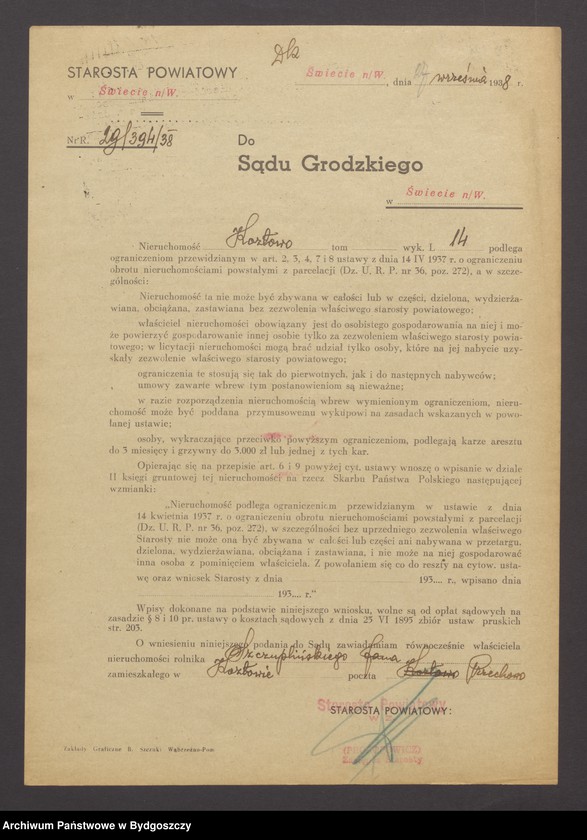 Dla
STAROSTA POWIATOWY
w Świecie n/W.
Świecie n/W. , dnia 17 września 1938 r.
Nr R. 29/394/38
Do
Sądu Grodzkiego
w Świecie n/W.
Nieruchomość Kozłowo tom wyk. l. 14 podlega
ograniczeniom przewidzianym w art. 2, 3, 4, 7 i 8 ustawy z dnia 14 IV 1937 r. o ograniczeniu
obrotu nieruchomościami powstałymi z parcelacji (Dz. U. R. P. nr 36, poz. 272), a w szcze-
gólności:
Nieruchomość ta nie może być zbywana w całości lub w części, dzielona, wydzierża-
wiana, obciążana, zastawiana bez zezwolenia właściwego starosty powiatowego;
właściciel nieruchomości obowiązany jest do osobistego gospodarowania na niej i mo-
że powierzyć gospodarowanie innej osobie tylko za zezwoleniem właściwego starosty powia-
towego; w licytacji nieruchomości mogą brać udział tylko osoby, które na jej nabycie uzy-
skały zezwolenie właściwego starosty powiatowego;
ograniczenia te stosują się tak do pierwotnych, jak i do następnych nabywców;
umowy zawarte wbrew tym postanowieniom są nieważne;
w razie rozporządzenia nieruchomością wbrew wymienionym ograniczeniom, nieru-
chomość może być poddana przymusowemu wykupowi na zasadach wskazanych w powo-
łanej ustawie;
osoby, wykraczające przeciwko powyższym ograniczeniom, podlegają karze aresztu
do 3 miesięcy i grzywny do 3.000 zł lub jednej z tych kar.
Opierając się na przepisie art. 6 i 9 powyżej cyt. ustawy wnoszę o wpisanie w dziale
II księgi gruntowej tej nieruchomości na rzecz Skarbu Państwa Polskiego następującej
wzmianki:
„Nieruchomość podlega ograniczeniom przewidzianym w ustawie z dnia
14 kwietnia 1937 r. o ograniczeniu obrotu nieruchomościami powstałymi z parcelacji
(Dz. U. R. P. nr 36, poz. 272), w szczególności bez uprzedniego zezwolenia właściwego
Starosty nie może ona być zbywana w całości lub części ani nabywana w przetargu,
dzielona, wydzierżawiana, obciążana i zastawiana, i nie może na niej gospodarować
inna osoba z pominięciem właściciela. Z powołaniem się co do reszty na cytow. usta-
wę oraz wniosek Starosty z dnia 193.... r., wpisano dnia
193.... r."
Wpisy dokonane na podstawie niniejszego wniosku, wolne są od opłat sądowych na
zasadzie § 8 i 10 pr. ustawy o kosztach sądowych z dnia 25 VI 1895 zbiór ustaw pruskich
str. 203.
O wniesieniu niniejszego podania do Sądu zawiadamiam równocześnie właściciela
nieruchomości rolnika Szczuplińskiego Jana
zamieszkałego w Kozłowie poczta Kozłowo Przechowo
Starosta Powiatowy
STAROSTA POWIATOWY:
Zakłady Graficzne B. Szczuki Wąbrzeźno-Pom.
Archiwum Państwowe w Bydgoszczy